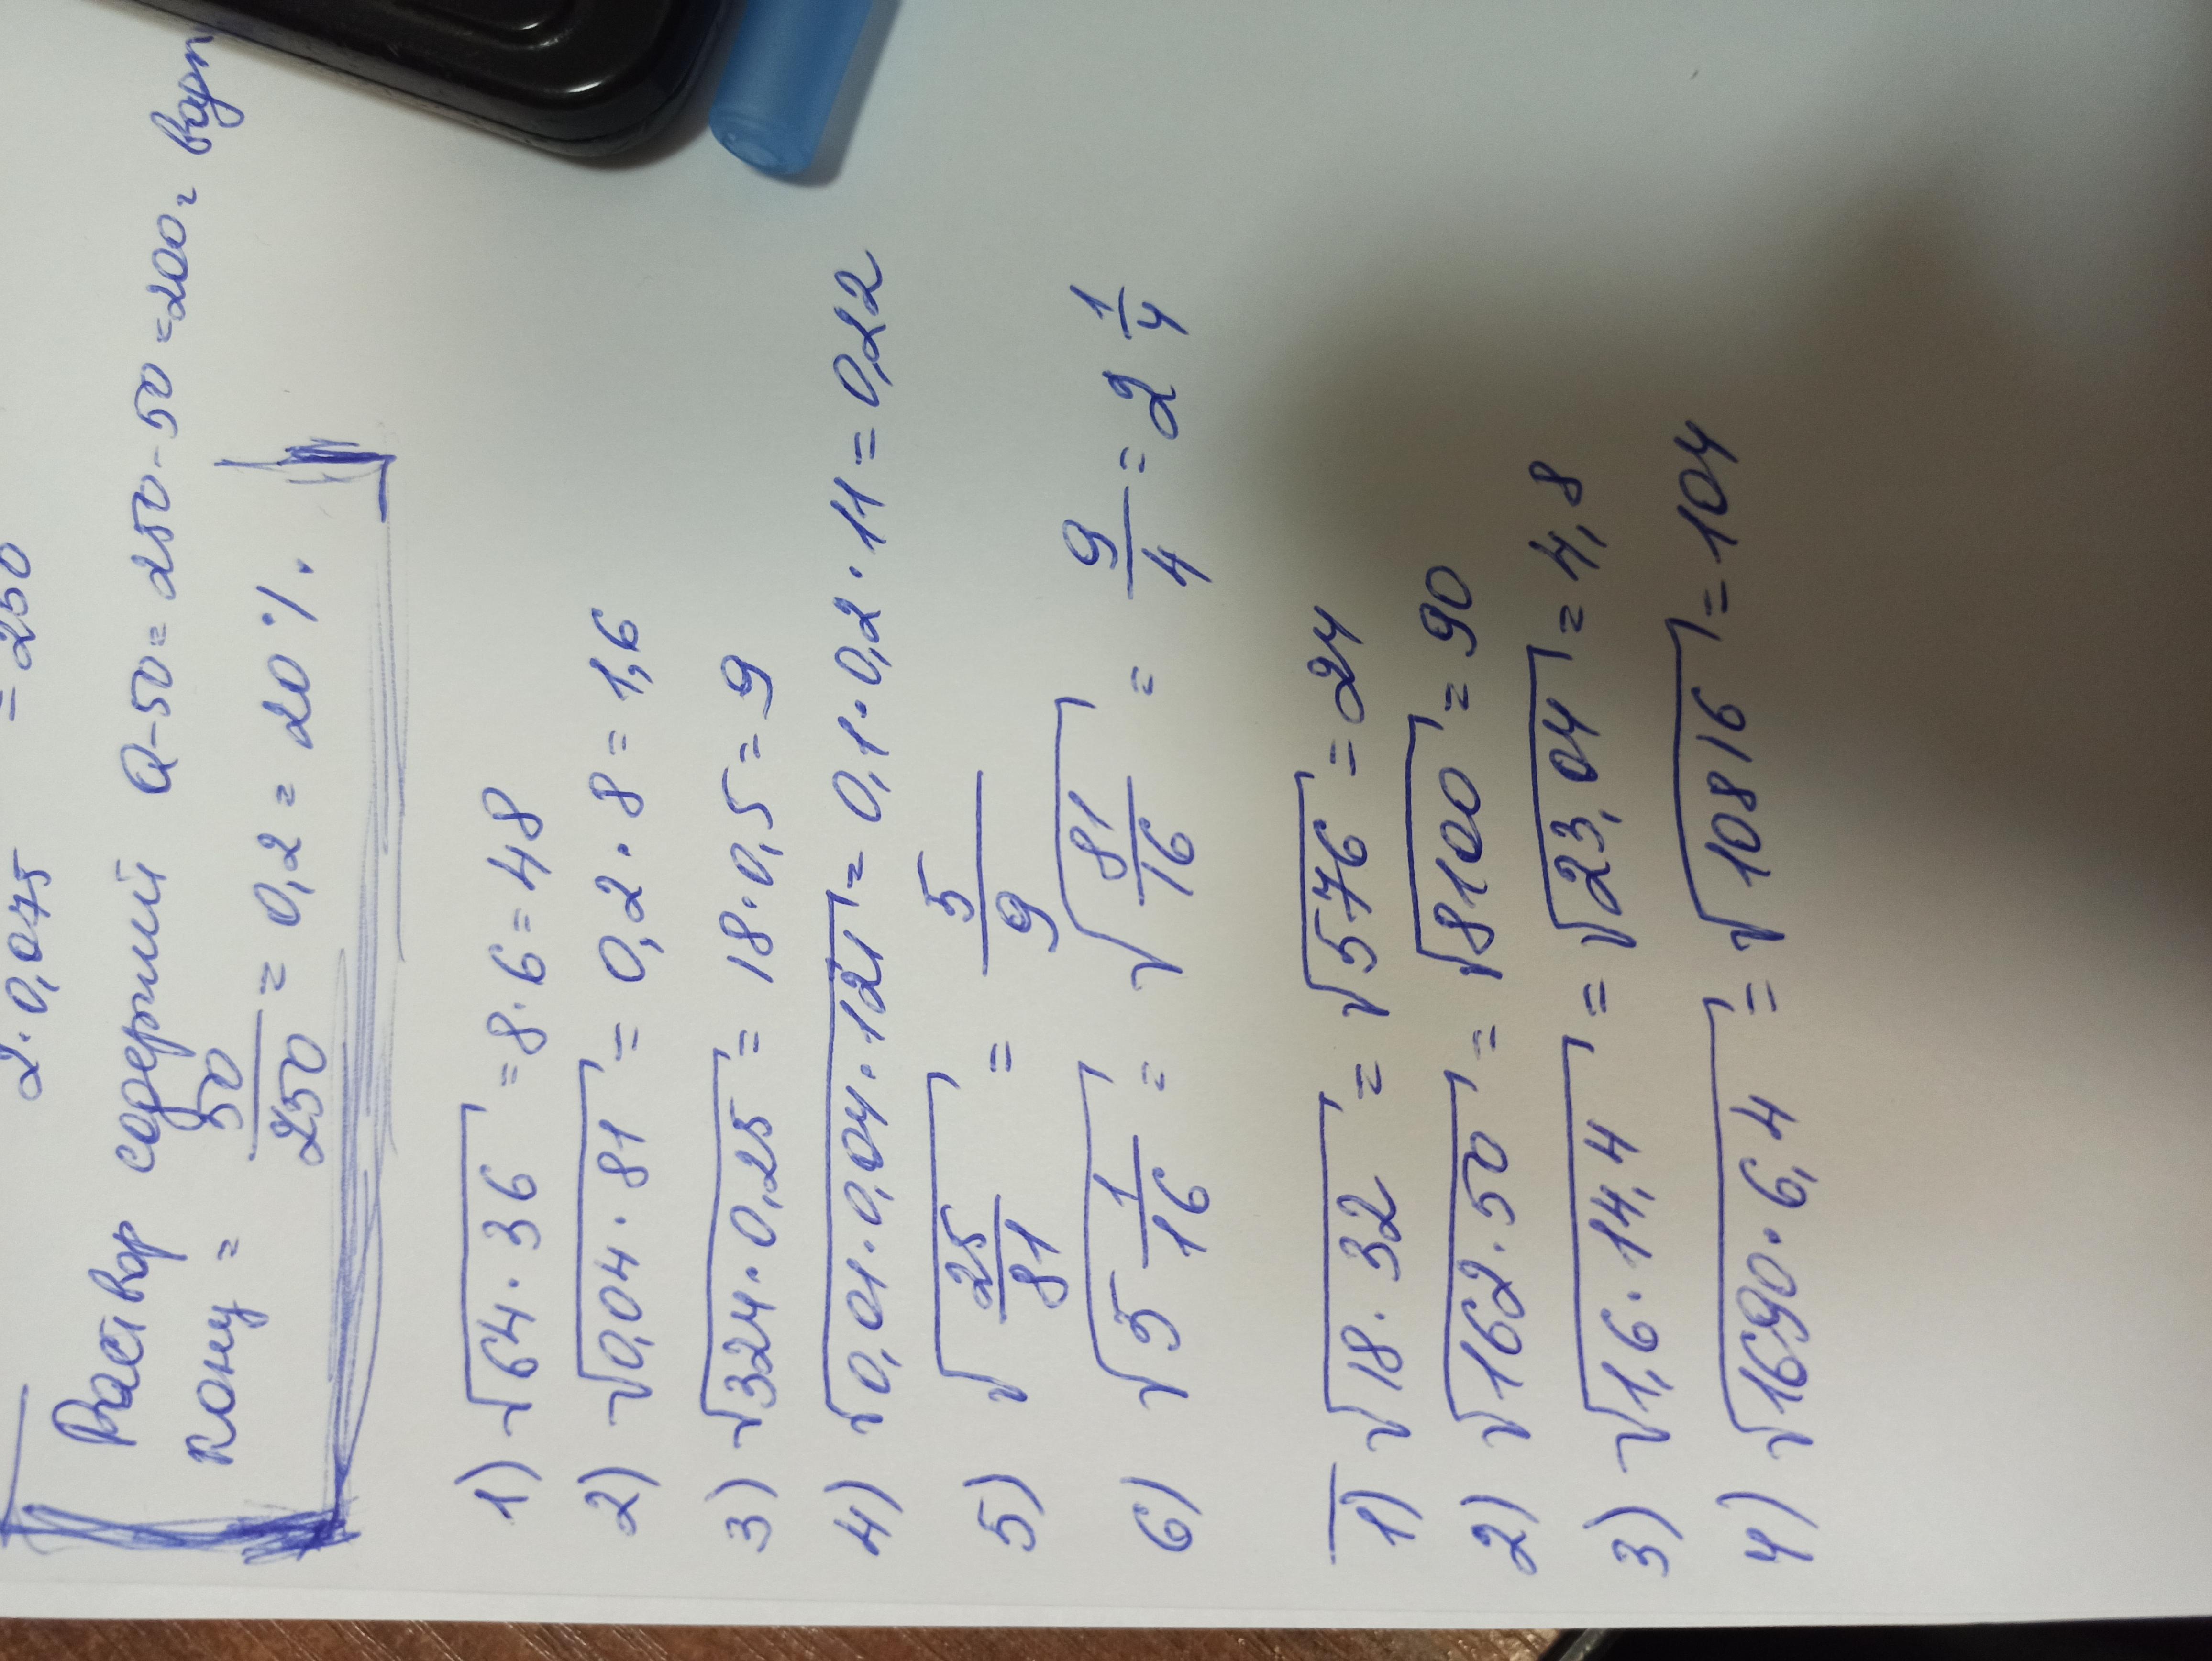 2·0,075 = 250
Раствор содержит a-50=250-50=200г воды
кону = 50/250 = 0,2 = 20%.
1) √64·36 = 8·6=48
2) √0,04·81 = 0,2·8=1,6
3) √324·0,25 = 18·0,5=9
4) √0,01·0,04·121 = 0,1·0,2·11=0,22
5) √25/81 = 5/9
6) √5 1/16 = √81/16 = 9/4 = 2 1/4
1) √18·32 = √576 = 24
2) √162·50 = √8100 = 90
3) √1,6·14,4 = √23,04 = 4,8
4) √1690·6,4 = √10816 = 104